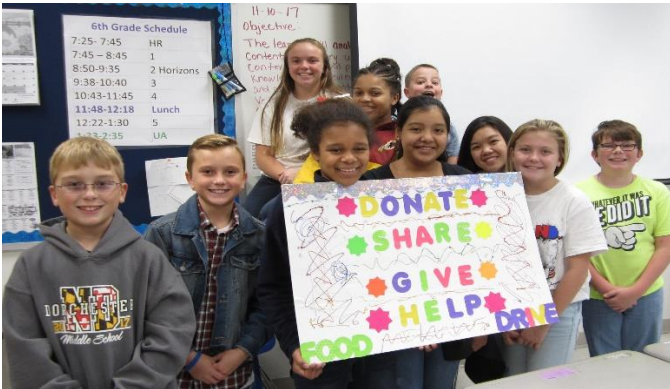 6th Grade Schedule
7:25- 7:45 HR
7:45 – 8:45 1
8:50-9:35 2 Horizons
9:38-10:40 3
10:43-11:45 4
11:48-12:18 Lunch
12:22-1:30 5
1:33-2:35 UA
11-10-17
Objective:
The
DONATE
SHARE
GIVE
HELP
FOOD DRIVE
DORCHESTER
MD
2017
Middle School
WHATEVER IT WAS
DID IT